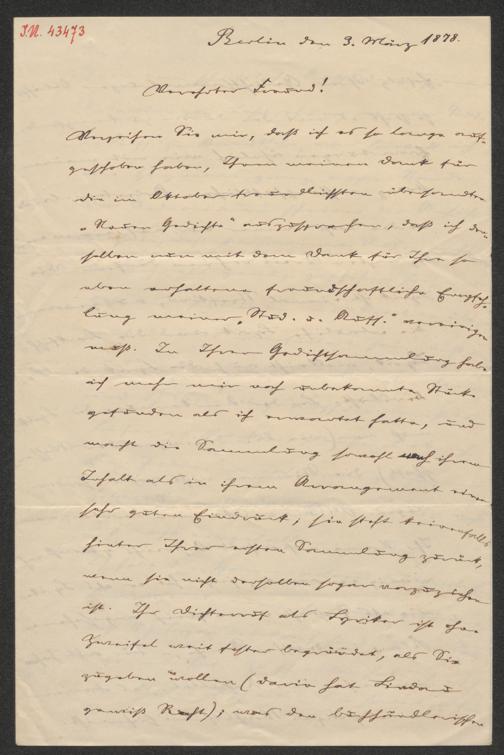 I.N. 43473
Berlin den 3. März 1878.
Verehrter Freund!
Verzeihen Sie mir, daß ich es so lange auf-
geschoben habe, Ihnen meinen Dank für
die im Oktober freundlichst übersandten
„Neuen Gedichte“ auszusprechen, daß ich den-
selben nun mit dem Dank für Ihre so
eben erhaltene freundschaftliche Empfeh-
lung meiner „Stud. u. Auff.“ vereinigen
muß. In Ihrer Gedichtsammlung habe
ich mehr mir noch unbekannte Stücke
gefunden als ich erwartet hatte, und
macht die Sammlung sowohl nach ihrem
Inhalt als in ihrem Arrangement einen
sehr guten Eindruck; sie steht keinenfalls
hinter Ihrer ersten Sammlung zurück,
wenn sie nicht derselben sogar vorzuziehen
ist. Ihr Dichterruf als Lyriker ist ohne
Zweifel weit fester begründet, als Sie
zugeben wollen (darin hat Lindau
gewiß Recht); was den buchhändlerischen